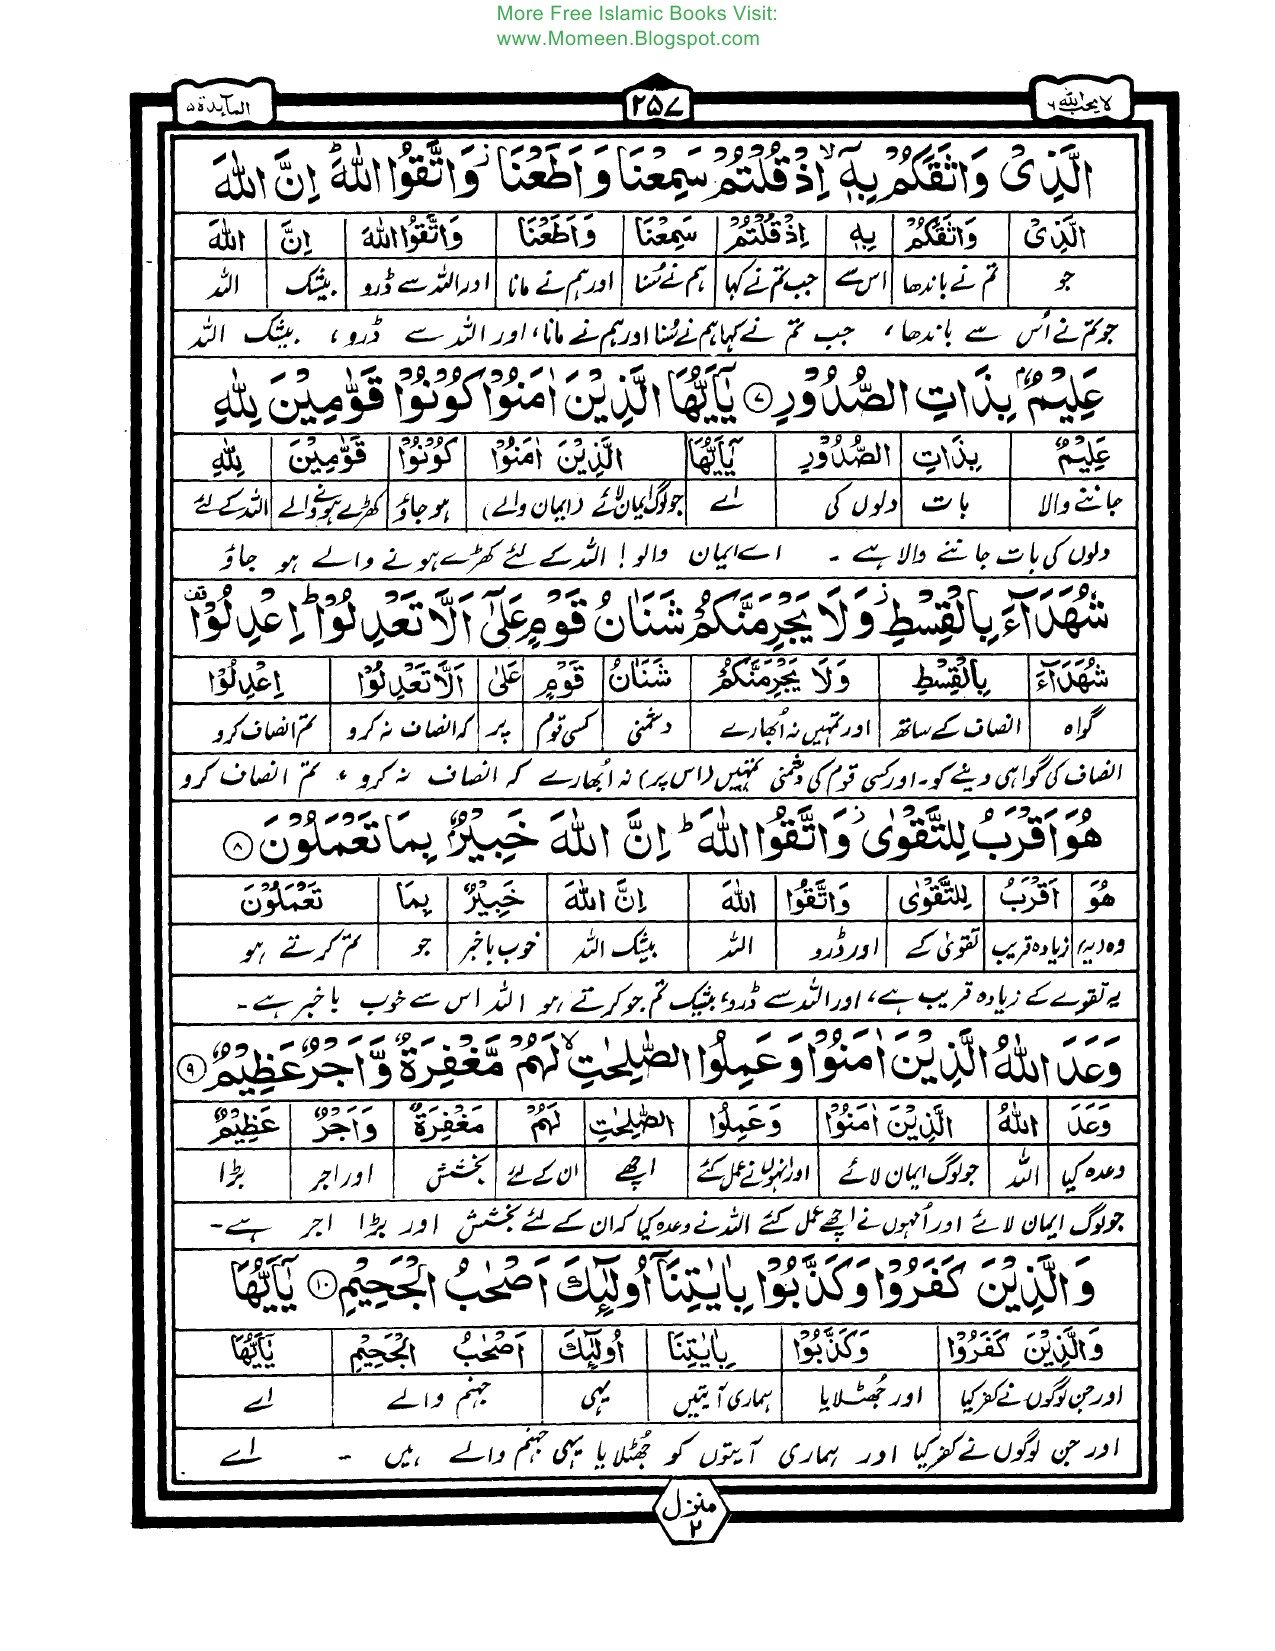 More Free Islamic Books Visit:
www.Momeen.Blogspot.com
لا يحب الله ٦
٢٥٧
المآىدة ٥
الَّذِىْ وَاثَقَكُمْ بِهٖٓ ۙ اِذْ قُلْتُمْ سَمِعْنَا وَاَطَعْنَا ۡ وَاتَّقُوا اللّٰهَ ؕ اِنَّ اللّٰهَ
الَّذِىْ وَاثَقَكُمْ بِهٖٓ اِذْ قُلْتُمْ سَمِعْنَا وَاَطَعْنَا وَاتَّقُوا اللّٰهَ اِنَّ اللّٰهَ
جو تم نے باندھا اس سے جب تم نے کہا ہم نے سُنا اور ہم نے مانا اور اللہ سے ڈرو بیشک اللہ
جو تم نے اُس سے باندھا، جب تم نے کہا ہم نے سُنا اور ہم نے مانا، اور اللہ سے ڈرو، بیشک اللہ
عَلِيْمٌۢ بِذَاتِ الصُّدُوْرِ ﴿٧﴾ يٰٓاَيُّهَا الَّذِيْنَ اٰمَنُوْا كُوْنُوْا قَوّٰمِيْنَ لِلّٰهِ
عَلِيْمٌۢ بِذَاتِ الصُّدُوْرِ يٰٓاَيُّهَا الَّذِيْنَ اٰمَنُوْا كُوْنُوْا قَوّٰمِيْنَ لِلّٰهِ
جاننے والا بات دلوں کی اے جو لوگ ایمان لائے (ایمان والے) ہو جاؤ کھڑے ہونے والے اللہ کے لئے
دلوں کی بات جاننے والا ہے ۔ اے ایمان والو! اللہ کے لئے کھڑے ہونے والے ہو جاؤ
شُهَدَآءَ بِالْقِسْطِ ۡ وَلَا يَجْرِمَنَّكُمْ شَنَاٰنُ قَوْمٍ عَلٰٓى اَلَّا تَعْدِلُوْا ؕ اِعْدِلُوْا ۗقف
شُهَدَآءَ بِالْقِسْطِ وَلَا يَجْرِمَنَّكُمْ شَنَاٰنُ قَوْمٍ عَلٰٓى اَلَّا تَعْدِلُوْا اِعْدِلُوْا
گواہ انصاف کے ساتھ اور تمہیں نہ اُبھارے دشمنی کسی قوم پر کہ انصاف نہ کرو تم انصاف کرو
انصاف کی گواہی دینے کو۔ اور کسی قوم کی دشمنی تمہیں (اس پر) نہ اُبھارے کہ انصاف نہ کرو، تم انصاف کرو
هُوَ اَقْرَبُ لِلتَّقْوٰى ۡ وَاتَّقُوا اللّٰهَ ؕ اِنَّ اللّٰهَ خَبِيْرٌۢ بِمَا تَعْمَلُوْنَ ﴿٨﴾
هُوَ اَقْرَبُ لِلتَّقْوٰى وَاتَّقُوا اللّٰهَ اِنَّ اللّٰهَ خَبِيْرٌۢ بِمَا تَعْمَلُوْنَ
وہ (یہ) زیادہ قریب تقویٰ کے اور ڈرو اللہ بیشک اللہ خوب باخبر جو تم کرتے ہو
یہ تقوے کے زیادہ قریب ہے، اور اللہ سے ڈرو، بیشک تم جو کرتے ہو اللہ اس سے خوب باخبر ہے ۔
وَعَدَ اللّٰهُ الَّذِيْنَ اٰمَنُوْا وَعَمِلُوا الصّٰلِحٰتِ ۙ لَهُمْ مَّغْفِرَةٌ وَّاَجْرٌ عَظِيْمٌ ﴿٩﴾
وَعَدَ اللّٰهُ الَّذِيْنَ اٰمَنُوْا وَعَمِلُوا الصّٰلِحٰتِ لَهُمْ مَّغْفِرَةٌ وَّاَجْرٌ عَظِيْمٌ
وعدہ کیا اللہ جو لوگ ایمان لائے اور انہوں نے عمل کئے اچھے ان کے لئے بخشش اور اجر بڑا
جو لوگ ایمان لائے اور اُنہوں نے اچھے عمل کئے اللہ نے وعدہ کیا کہ ان کے لئے بخشش اور بڑا اجر ہے ۔
وَالَّذِيْنَ كَفَرُوْا وَكَذَّبُوْا بِاٰيٰتِنَآ اُولٰٓئِكَ اَصْحٰبُ الْجَحِيْمِ ﴿١٠﴾ يٰٓاَيُّهَا
وَالَّذِيْنَ كَفَرُوْا وَكَذَّبُوْا بِاٰيٰتِنَا اُولٰٓئِكَ اَصْحٰبُ الْجَحِيْمِ يٰٓاَيُّهَا
اور جن لوگوں نے کفر کیا اور جُھٹلایا ہماری آیتیں یہی جہنم والے اے
اور جن لوگوں نے کفر کیا اور ہماری آیتوں کو جُھٹلایا یہی جہنم والے ہیں ۔ اے
منزل
٢